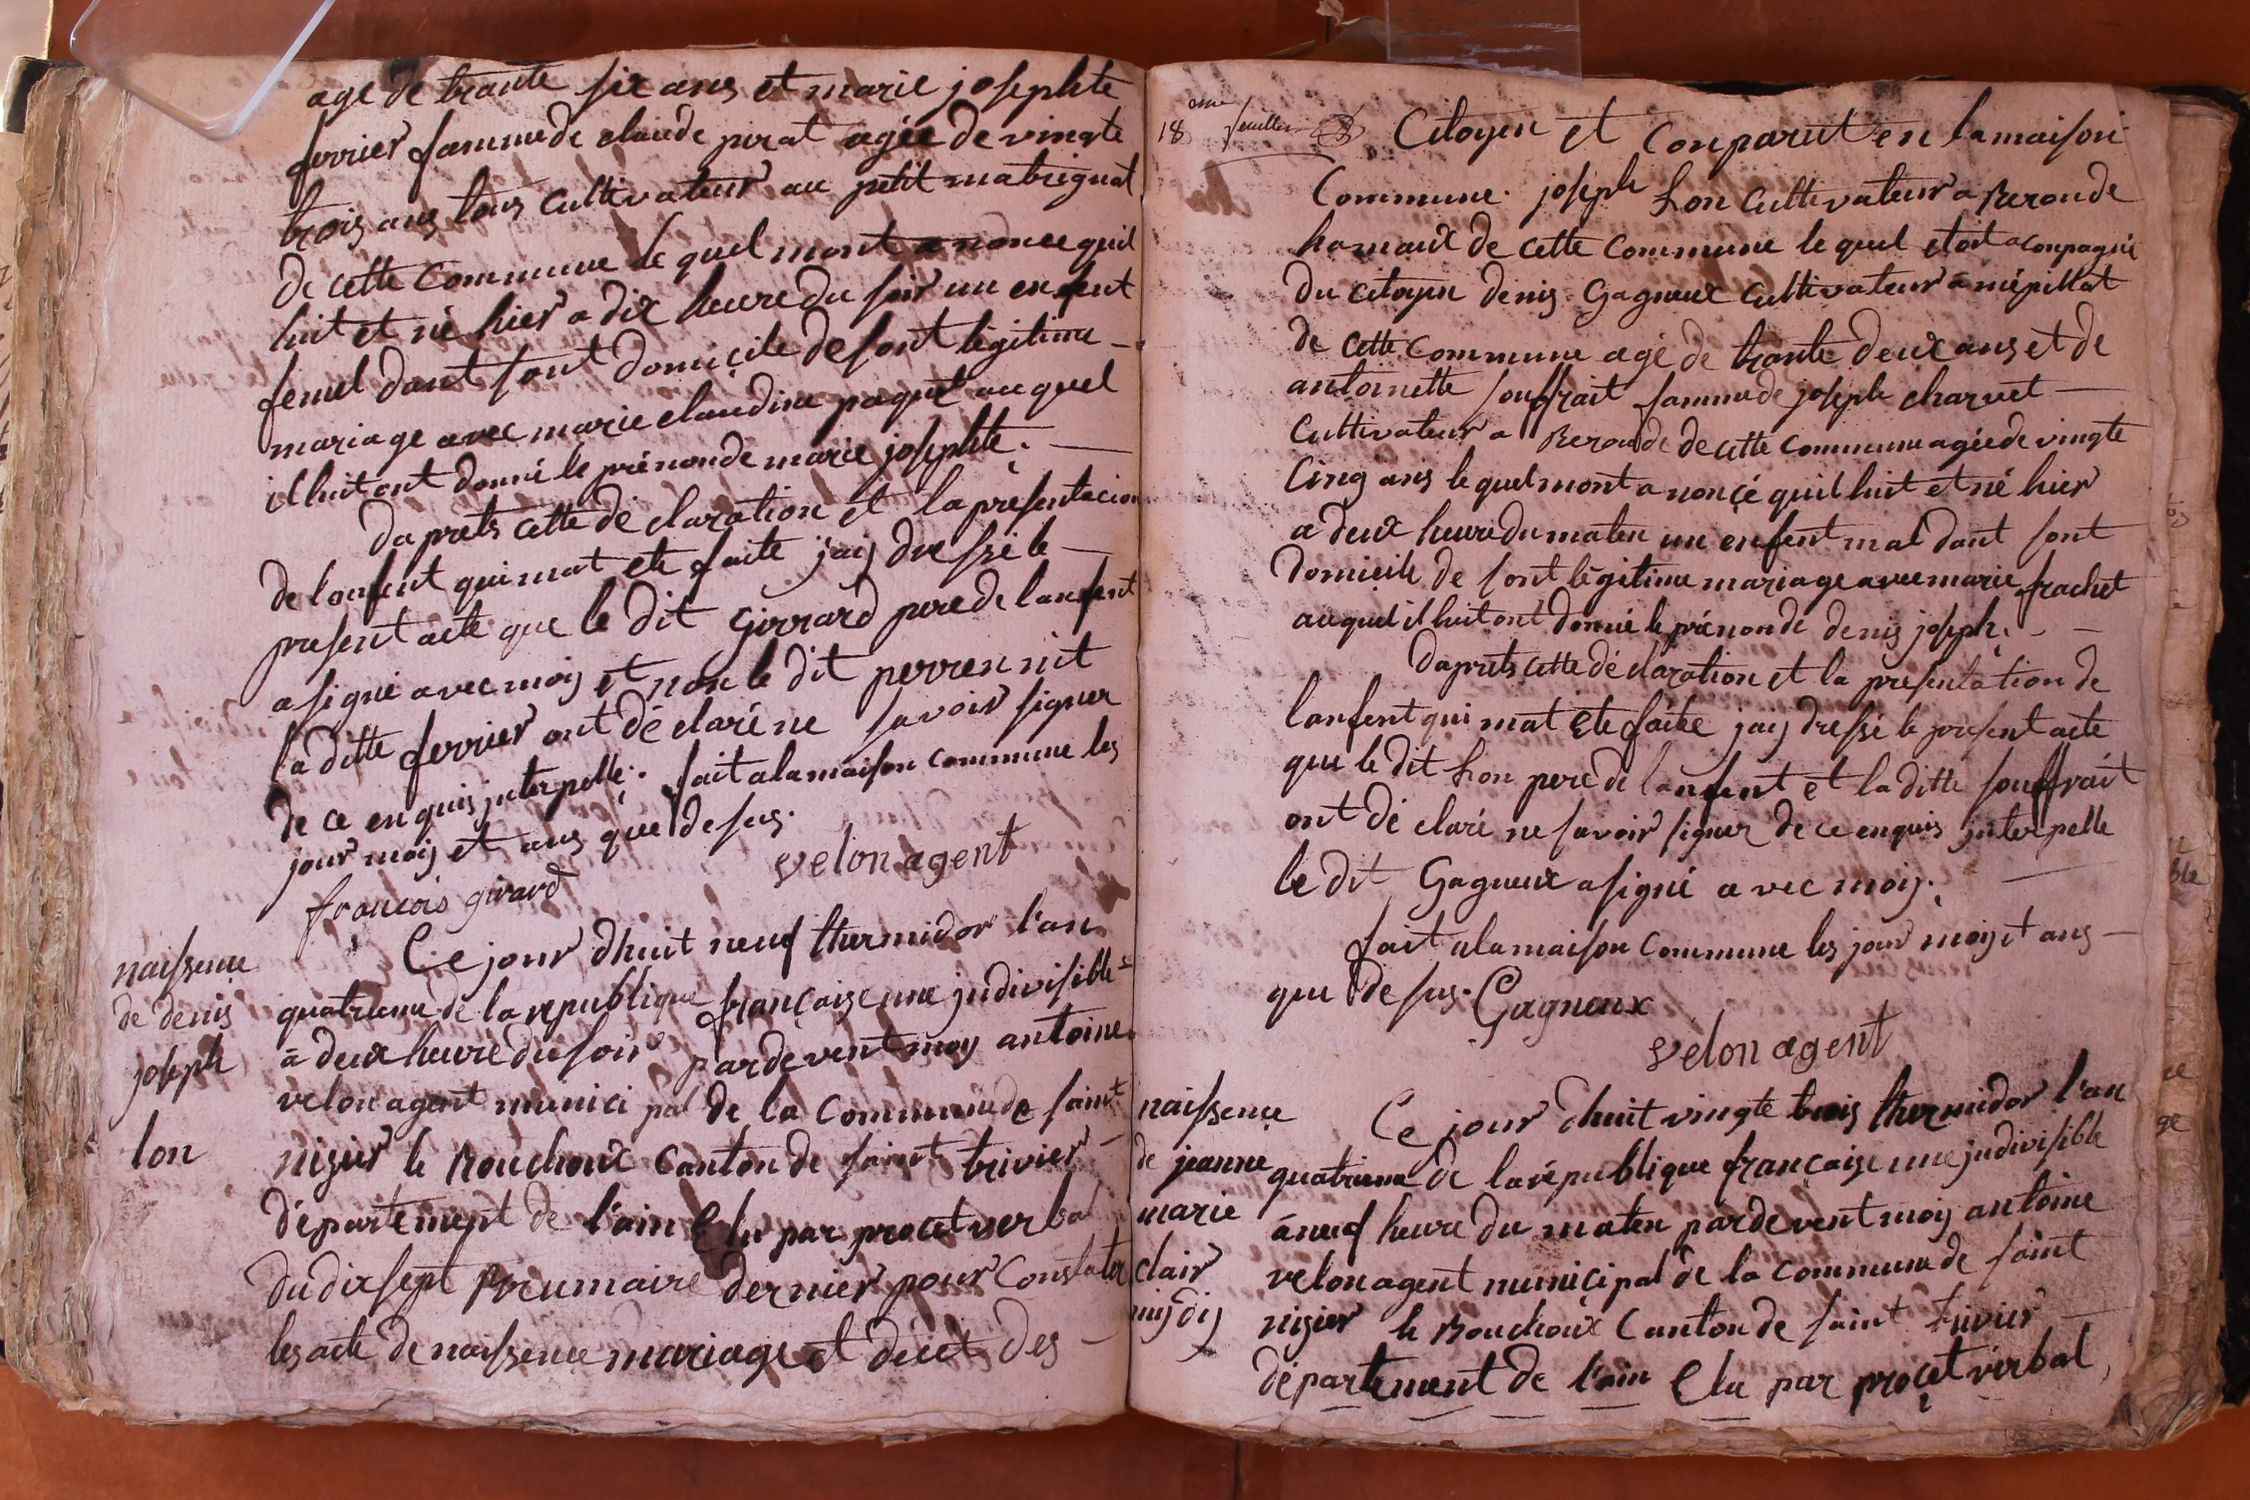 age de trante six ans et marie josephte
ferrier famme de claude pirat agée de vingte
trois ans tous cultivateur au petit matrignat
de cette commune le quel mont anoncé quil
luit et né hier a dix heure du soir un enfent
femel dant sont domicile de sont légitime
mariage avec marie claudine paquet au quel
il luit ont donné le prénon de marie josephte.
daprets cette dé claration et la présentacion
de lenfent qui mat ete faite jaij dressé le
present acte que le dit Girrard pere de lanfent
a signé avec moij et non le dit perren nit
la ditte ferrier ont dé claré ne savoir signer
de ce enquis jnterpellé. fait a la maison commune les
jour moij et ans que desus.
velon agent
francois girard
naissence
de denis
joseph
lon
Ce jour dhuit neuf thermidor l'an
quatrieme de la republique française une jndivisible
à deux heure du soir pardevent moy antoine
velon agent munici pal de la commune de saint
nisier le Bouchoux canton de saint trivier
département de l'ain Elu par procet verbal
du dix sept Breumaire dernier pour constater
les acte de naissence mariage et décet des
18 eme feuillet Citoyen et Conparut en la maison
Commune. joseph Lon Cultivateur a Beronde
hamaux de cette commune le quel etoit aconpagné
du citoyen denis Gagneux cultivateur a mépillat
de cette commune agé de trante deux ans et de
antoinette souffrait famme de joseph charvet
Cultivateur a Beronde de cette commune agée de vingte
Cinq ans le quel mont a noncé quil luit et né hier
a deux heure du maten un enfent mal dant sont
domicile de sont légitime mariage avec marie frachet
au quel il luit ont donné le prénon de denis joseph.
daprets cette dé claration et la présentation de
lanfent qui mat ete faite jaij dressé le present acte
que le dit Lon pere de lanfent et la ditte souffrait
ont dé claré ne savoir signer de ce enquis jnterpelle
le dit Gagneux a signé avec moij.
fait a la maison commune les jour moij et ans
que desus. Gagneux
velon agent
naissence
de jeanne
marie
clair
mijdij
Ce jour dhuit vingte trois thermidor l'an
quatrieme de la république française une jndivisible
à neuf heure du maten pardevent moij antoine
velon agent municipal de la commune de saint
nisier le Bouchoux Canton de saint trivier
département de l'ain Elu par procet verbal